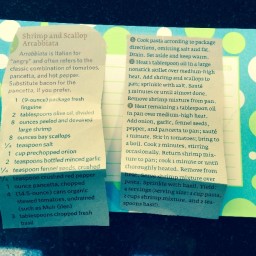 Shrimp and Scallop
Arrabbiata
Arrabbiata is Italian for
"angry" and often refers to the
classic combination of tomatoes,
pancetta, and hot pepper.
Substitute bacon for the
pancetta, if you prefer.
1 (9-ounce) package fresh
linguine
2 tablespoons olive oil, divided
8 ounces peeled and deveined
large shrimp
8 ounces bay scallops
1/4 teaspoon salt
1 cup prechopped onion
2 teaspoons bottled minced garlic
1/2 teaspoon fennel seeds, crushed
1/2 teaspoon crushed red pepper
1 ounce pancetta, chopped
2 (14.5-ounce) cans organic
stewed tomatoes, undrained
(such as Muir Glen)
3 tablespoons chopped fresh
basil
1 Cook pasta according to package
directions, omitting salt and fat.
Drain. Set aside and keep warm.
2 Heat 1 tablespoon oil in a large
nonstick skillet over medium-high
heat. Add shrimp and scallops to
pan; sprinkle with salt. Sauté
2 minutes or until almost done.
Remove shrimp mixture from pan.
3 Heat remaining 1 tablespoon oil
in pan over medium-high heat.
Add onion, garlic, fennel seeds,
pepper, and pancetta to pan; sauté
1 minute. Stir in tomatoes; bring to
a boil. Cook 2 minutes, stirring
occasionally. Return shrimp mix-
ture to pan; cook 1 minute or until
thoroughly heated. Remove from
heat. Serve shrimp mixture over
pasta. Sprinkle with basil. Yield:
4 servings (serving size: 1 cup pasta,